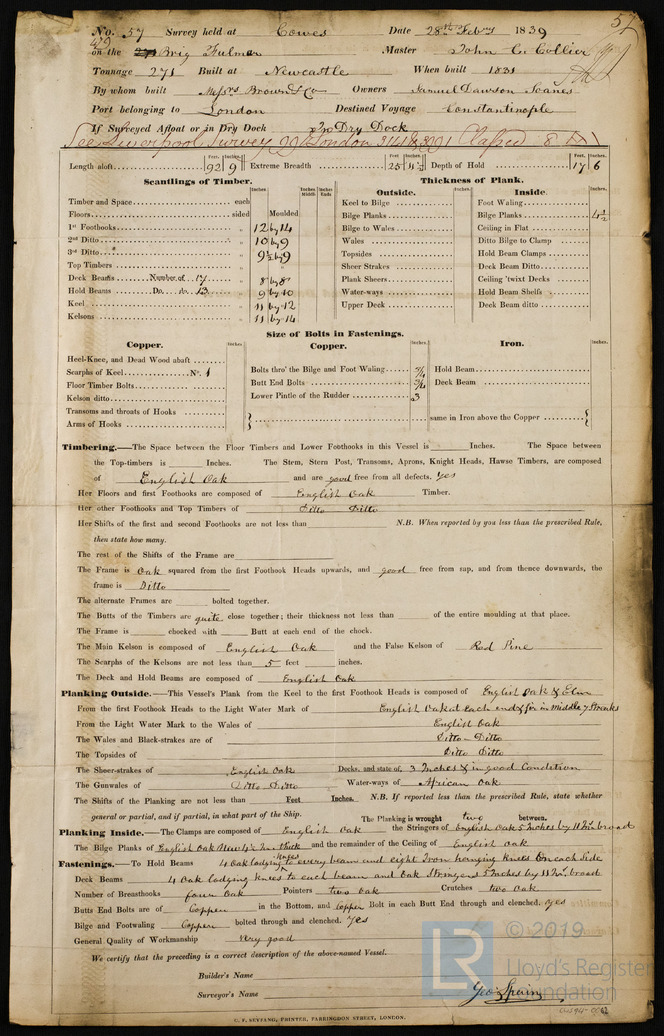 No. 57 Survey held at Cowes Date 28th Febry 1839
57
on the Brig Fulmer Master John C. Collier
Tonnage 271 Built at Newcastle When built 1831
By whom built Messrs Brown & Co Owners Samuel Dawson Soanes
Port belonging to London Destined Voyage Constantinople
If Surveyed Afloat or in Dry Dock In Dry Dock
See Liverpool Survey London Classed 8
Length aloft Feet. 92 Inches. 9 Extreme Breadth Feet 25 Inches. Depth of Hold Feet. 17 Inches. 6
Scantlings of Timber. Inches Inches Middle Inches Ends
Thickness of Plank.
Outside. Inches. Inside Inches.
Timber and Space each
Floors sided Moulded
1st Foothooks „ 12 by 14
2nd Ditto „ 10 by 9
3rd Ditto „ 9½ by 9
Top Timbers „
Deck Beams Number of 17 „ 8 by 8
Hold Beams Do. do. 13 „ 9 by 10
Keel „ 11 by 12
Kelsons „ 11 by 14
Keel to Bilge
Bilge Planks
Bilge to Wales
Wales
Topsides
Sheer Strakes
Plank Sheers
Water-ways
Upper Deck
Foot Waling
Bilge Planks 4½
Ceiling in Flat
Ditto Bilge to Clamp
Hold Beam Clamps
Deck Beam Ditto
Ceiling 'twixt Decks
Hold Beam Shelfs
Deck Beam ditto
Size of Bolts in Fastenings.
Copper. Inches. Copper. Inches. Iron. Inches.
Heel-Knee, and Dead Wood abaft
Scarphs of Keel No. 1
Floor Timber Bolts
Kelson ditto
Transoms and throats of Hooks
Arms of Hooks
Bolts thro' the Bilge and Foot Waling
Butt End Bolts
Lower Pintle of the Rudder 3
Hold Beam
Deck Beam
same in Iron above the Copper
Timbering.—The Space between the Floor Timbers and Lower Foothooks in this Vessel is Inches. The Space between
the Top-timbers is Inches. The Stem, Stern Post, Transoms, Aprons, Knight Heads, Hawse Timbers, are composed
of English Oak and are good free from all defects. yes
Her Floors and first Foothooks are composed of English Oak Timber.
Her other Foothooks and Top Timbers of Ditto Ditto
Her Shifts of the first and second Foothooks are not less than N.B. When reported by you less than the prescribed Rule,
then state how many.
The rest of the Shifts of the Frame are
The Frame is Oak squared from the first Foothook Heads upwards, and good free from sap, and from thence downwards, the
frame is Ditto
The alternate Frames are bolted together.
The Butts of the Timbers are quite close together; their thickness not less than of the entire moulding at that place.
The Frame is chocked with Butt at each end of the chock.
The Main Kelson is composed of English Oak and the False Kelson of Red Pine
The Scarphs of the Kelsons are not less than 5 feet inches.
The Deck and Hold Beams are composed of English Oak
Planking Outside.—This Vessel's Plank from the Keel to the first Foothook Heads is composed of English Oak & Elm
From the first Foothook Heads to the Light Water Mark of English Oak at each end & fir in middle 7 Streaks
From the Light Water Mark to the Wales of English Oak
The Wales and Black-strakes are of Ditto - Ditto
The Topsides of Ditto Ditto
The Sheer-strakes of English Oak Decks, and state of, 3 Inches & in good Condition
The Gunwales of Ditto Ditto Water-ways of African Oak
The Shifts of the Planking are not less than Feet Inches. N.B. If reported less than the prescribed Rule, state whether
general or partial, and if partial, in what part of the Ship. The Planking is wrought two between.
Planking Inside.—The Clamps are composed of English Oak the Stringers of English Oak 5 Inches by 11 In. broad
The Bilge Planks of English Oak New 4½ In. thick and the remainder of the Ceiling of English oak
Fastenings.—To Hold Beams 4 oak lodging knees to every beam and eight Iron hanging knees On each Side
Deck Beams 4 Oak lodging knees to each beam and Oak Stringers 5 Inches by 11 In. broad
Number of Breasthooks four oak Pointers two oak Crutches two oak
Butts End Bolts are of Copper in the Bottom, and Copper Bolt in each Butt End through and clenched, yes
Bilge and Footwaling Copper bolted through and clenched. yes
General Quality of Workmanship very good
We certify that the preceding is a correct description of the above-named Vessel.
Builder's Name
Surveyor's Name Geo. Spain
C. F. SEYFANG, PRINTER, FARRINGDON STREET, LONDON.
© 2019
LR
Lloyd's Register
Foundation